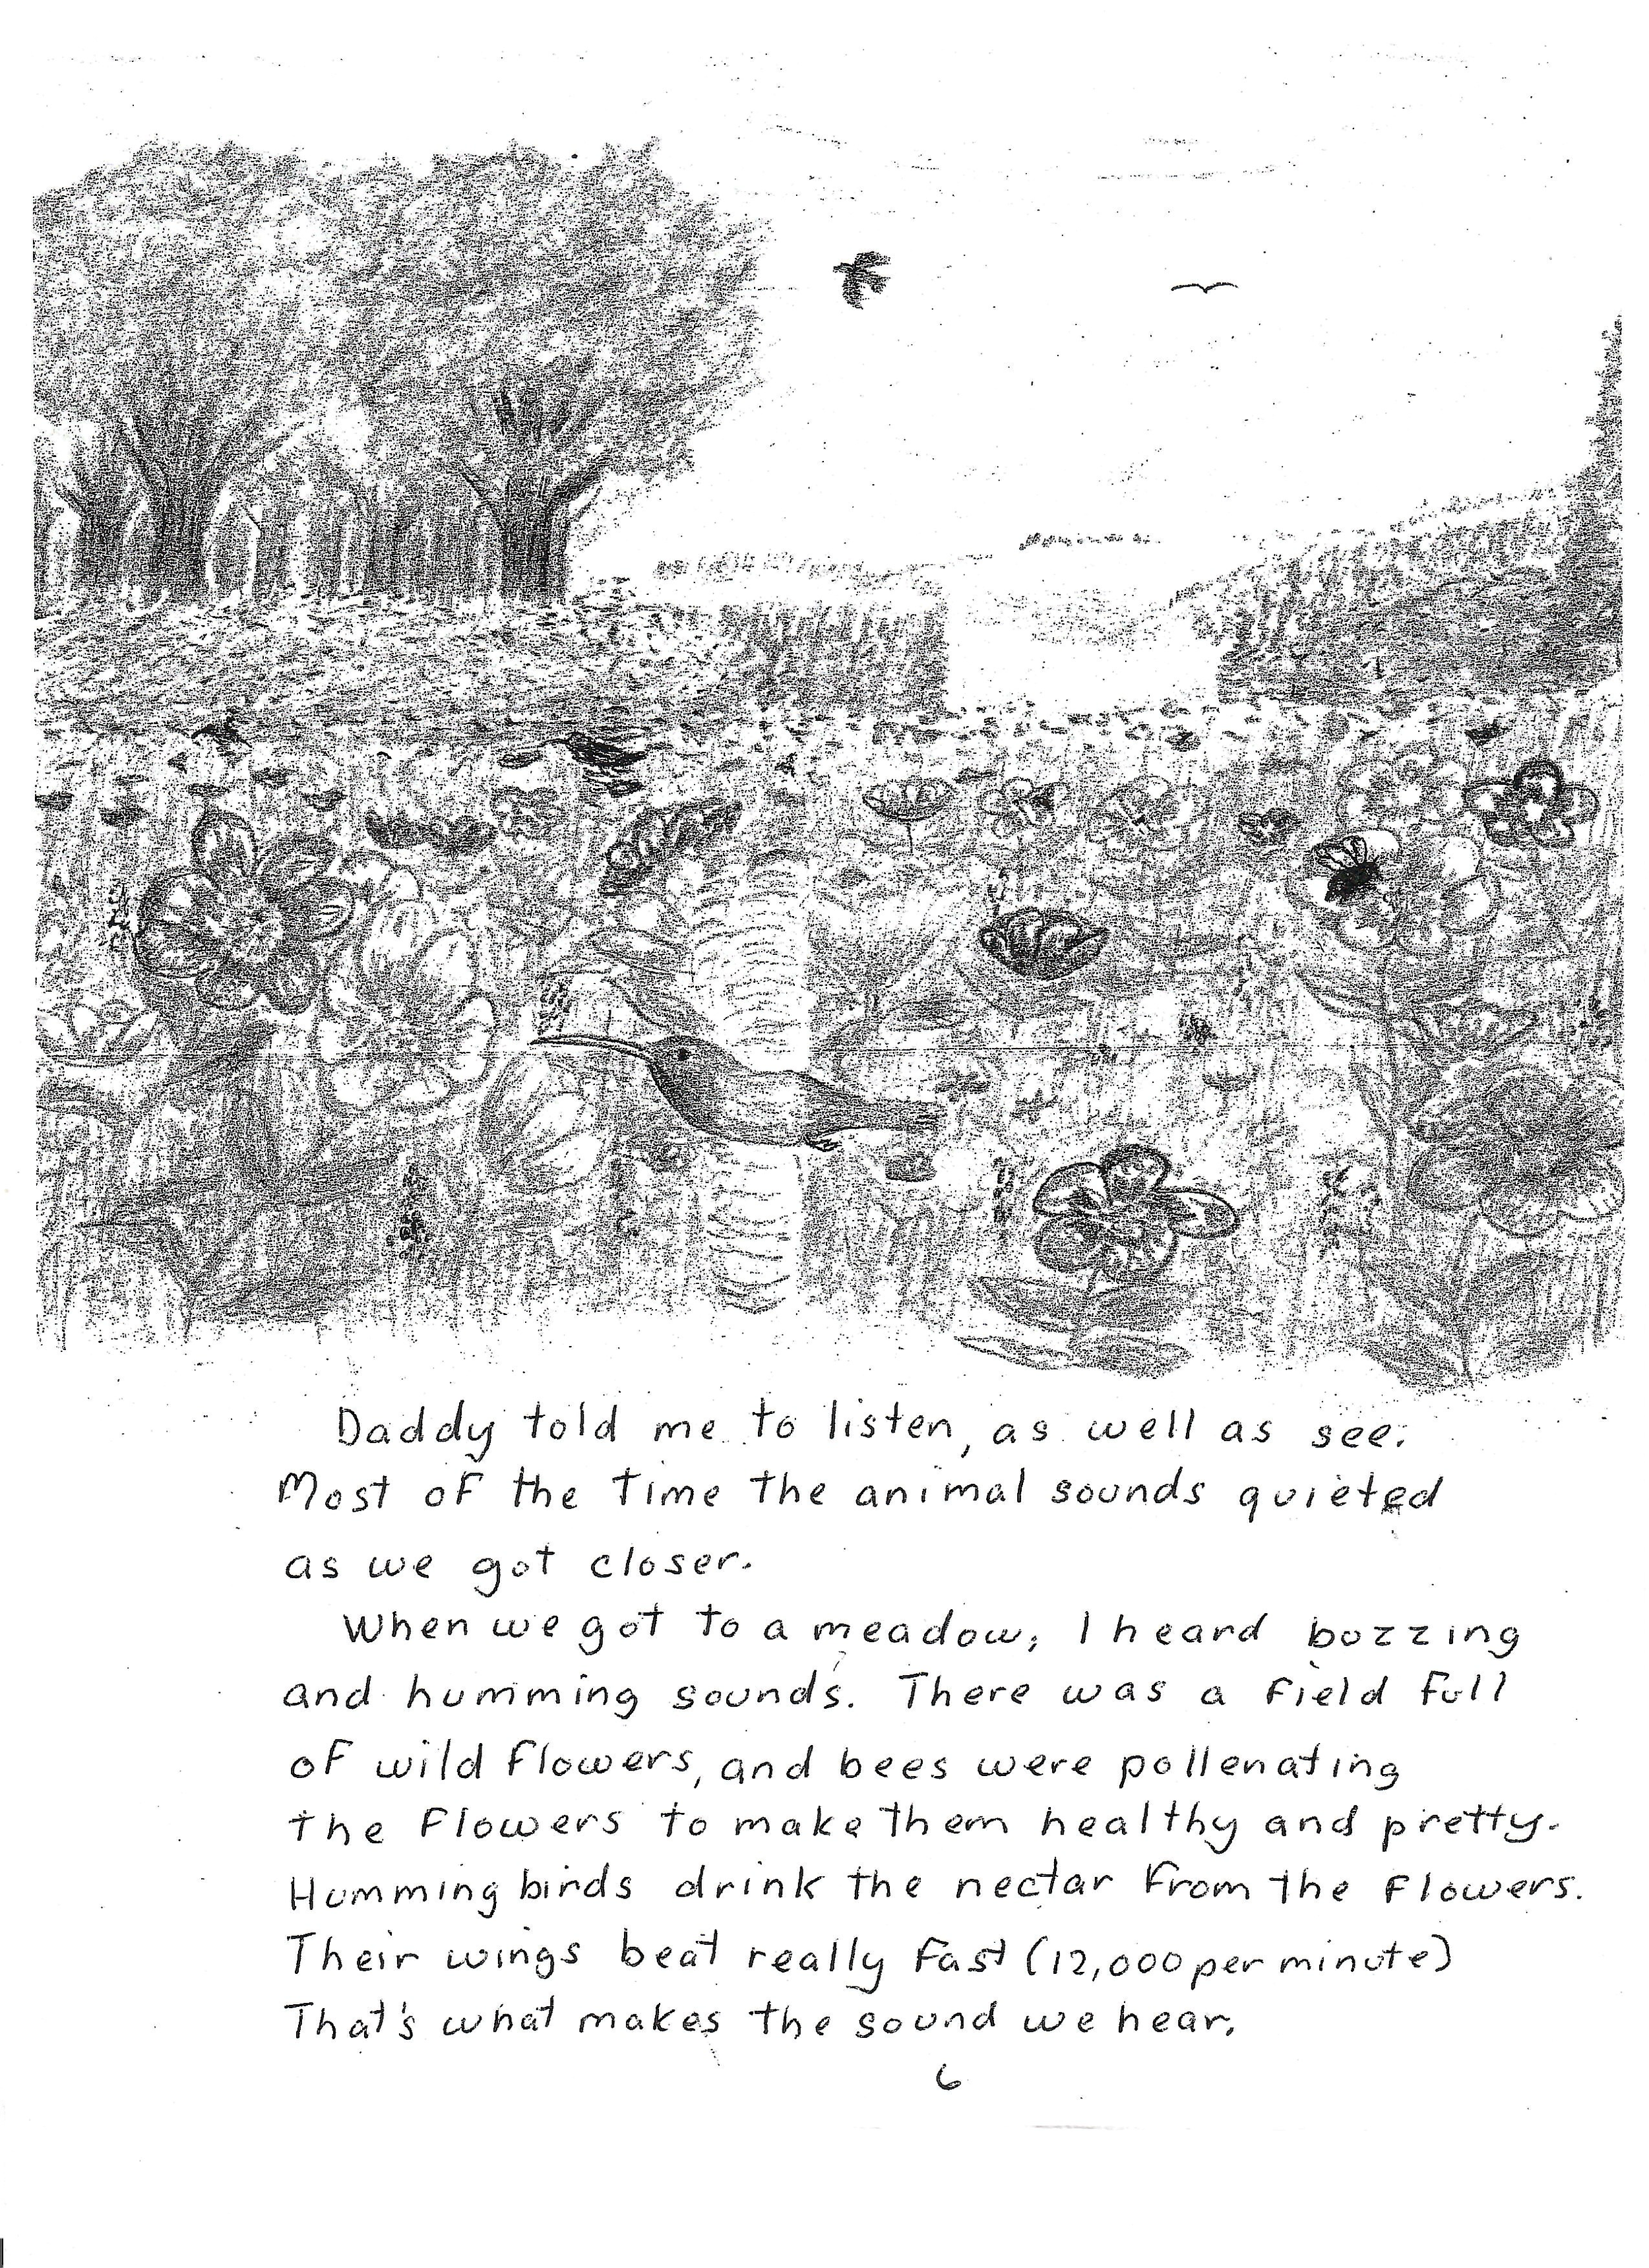 Daddy told me to listen, as well as see.
Most of the time the animal sounds quieted
as we got closer.
When we got to a meadow, I heard buzzing
and humming sounds. There was a field full
of wild flowers, and bees were pollenating
the flowers to make them healthy and pretty.
Humming birds drink the nectar from the flowers.
Their wings beat really fast (12,000 per minute)
That's what makes the sound we hear.
6